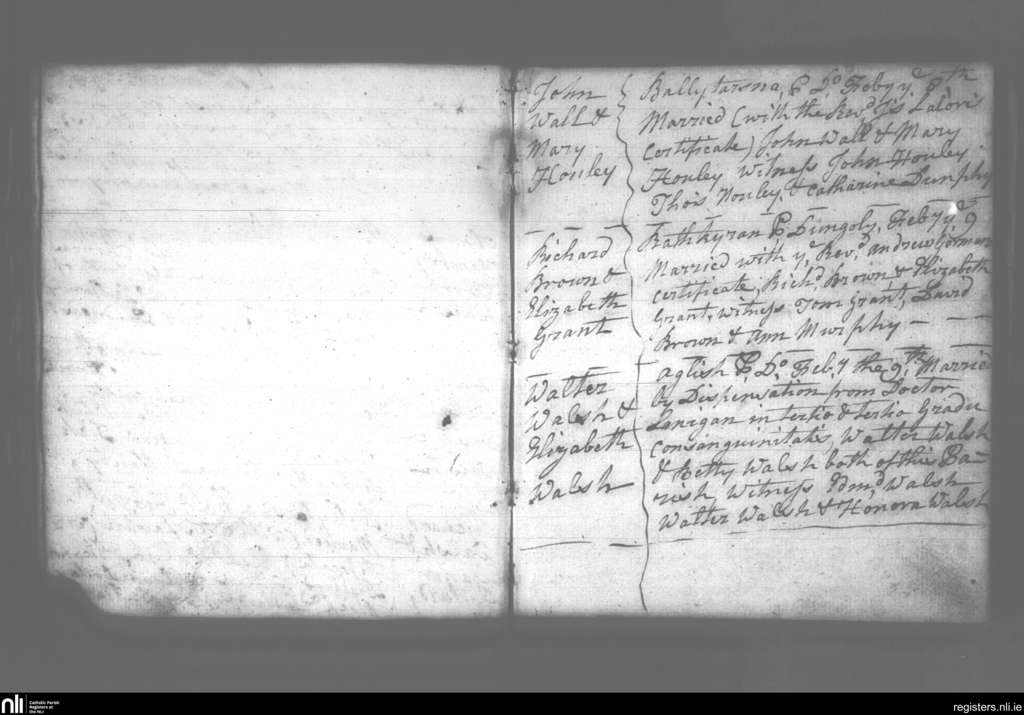 John
Wall &
Mary
Houley
Ballytarsna, P Do Feby ye th
Married (with the Revd Js Lalors
Certificate) John Wall & Mary
Houley witness John Houley
Thos Houley, & Catharine Dunphy
Richard
Brown &
Elizabeth
Grant
Rathkyran P Dungoly, Feby ye 9
Married with ye Revd andrew Gorman
Certificate, Richd Brown & Elizabeth
Grant, witness Tom Grant, David
Brown & ann Murphy
Walter
Walsh &
Elizabeth
Walsh
aglish P. Do. Feb.y the 9th Married
by Dispensation from Doctor
Lanigan in tertio & tertio Gradu
Consanguinitatis Walter Walsh
& Betty Walsh both of this Pa=
rish, Witness Edmd Walsh
Walter Walsh & Honora Walsh
nli Catholic Parish
Registers at
the NLI
registers.nli.ie